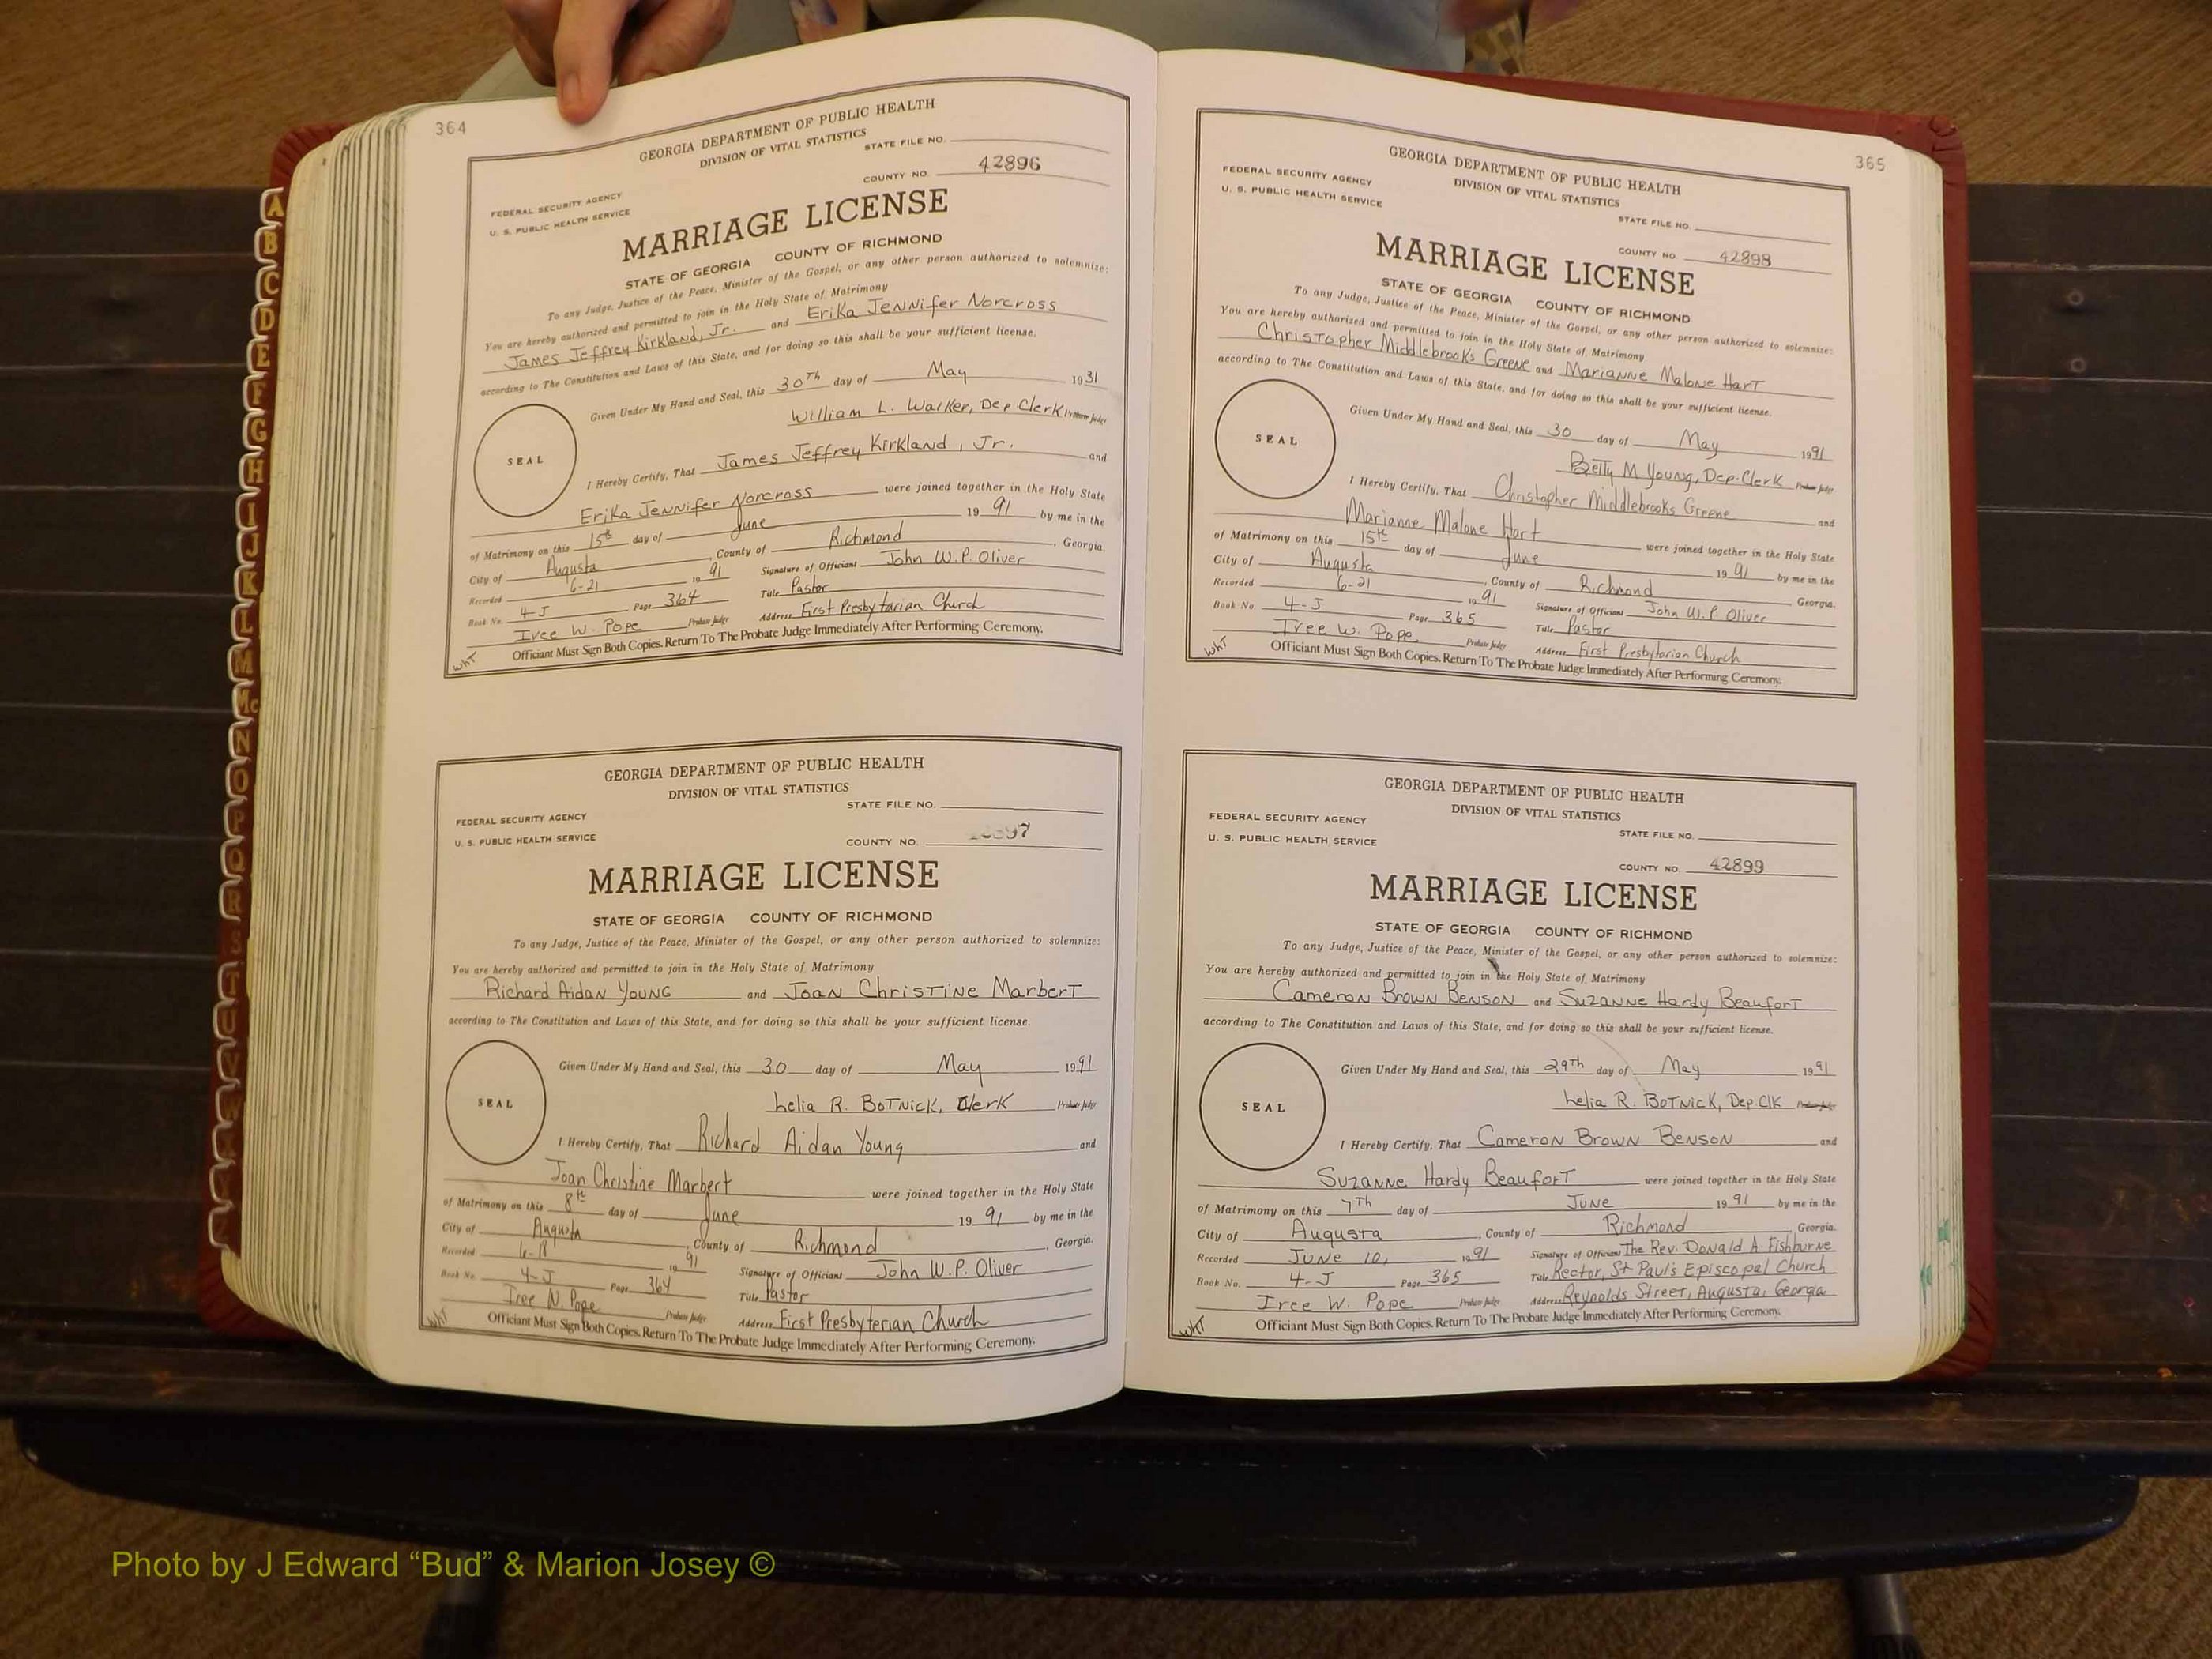 364
GEORGIA DEPARTMENT OF PUBLIC HEALTH
DIVISION OF VITAL STATISTICS
STATE FILE NO.
FEDERAL SECURITY AGENCY
U. S. PUBLIC HEALTH SERVICE
COUNTY NO. 42896
MARRIAGE LICENSE
STATE OF GEORGIA COUNTY OF RICHMOND
To any Judge, Justice of the Peace, Minister of the Gospel, or any other person authorized to solemnize:
You are hereby authorized and permitted to join in the Holy State of Matrimony
James Jeffrey Kirkland, Jr. and Erika Jennifer Norcross
according to The Constitution and Laws of this State, and for doing so this shall be your sufficient license.
Given Under My Hand and Seal, this 30Th day of May 1931
William L. Walker, Dep Clerk Probate Judge
SEAL
I Hereby Certify, That James Jeffrey Kirkland, Jr. and
Erika Jennifer Norcross were joined together in the Holy State
of Matrimony on this 15th day of June 19 91 by me in the
City of Augusta, County of Richmond, Georgia.
Recorded 6-21 19 91 Signature of Officiant John W.P. Oliver
Book No. 4-J Page 364 Title Pastor
Iree W. Pope Probate Judge Address First Presbytarian Church
WhT Officiant Must Sign Both Copies. Return To The Probate Judge Immediately After Performing Ceremony.
GEORGIA DEPARTMENT OF PUBLIC HEALTH
DIVISION OF VITAL STATISTICS
STATE FILE NO.
FEDERAL SECURITY AGENCY
U. S. PUBLIC HEALTH SERVICE
COUNTY NO.
MARRIAGE LICENSE
STATE OF GEORGIA COUNTY OF RICHMOND
To any Judge, Justice of the Peace, Minister of the Gospel, or any other person authorized to solemnize:
You are hereby authorized and permitted to join in the Holy State of Matrimony
Richard Aidan Young and Joan Christine Marbert
according to The Constitution and Laws of this State, and for doing so this shall be your sufficient license.
Given Under My Hand and Seal, this 30 day of May 1991
Lelia R. Botnick, Clerk Probate Judge
SEAL
I Hereby Certify, That Richard Aidan Young and
Joan Christine Marbert were joined together in the Holy State
of Matrimony on this 8th day of June 19 91 by me in the
City of Augusta, County of Richmond, Georgia.
Recorded 6-18 19 91 Signature of Officiant John W.P. Oliver
Book No. 4-J Page 364 Title Pastor
Iree W. Pope Probate Judge Address First Presbyterian Church
WhT Officiant Must Sign Both Copies. Return To The Probate Judge Immediately After Performing Ceremony.
365
GEORGIA DEPARTMENT OF PUBLIC HEALTH
DIVISION OF VITAL STATISTICS
FEDERAL SECURITY AGENCY
U. S. PUBLIC HEALTH SERVICE
STATE FILE NO.
COUNTY NO. 42898
MARRIAGE LICENSE
STATE OF GEORGIA COUNTY OF RICHMOND
To any Judge, Justice of the Peace, Minister of the Gospel, or any other person authorized to solemnize:
You are hereby authorized and permitted to join in the Holy State of Matrimony
Christopher Middlebrooks Greene and Marianne Malone Hart
according to The Constitution and Laws of this State, and for doing so this shall be your sufficient license.
Given Under My Hand and Seal, this 30 day of May 1991
Betty M Young, Dep-Clerk Probate Judge
SEAL
I Hereby Certify, That Christopher Middlebrooks Greene and
Marianne Malone Hart were joined together in the Holy State
of Matrimony on this 15th day of June 19 91 by me in the
City of Augusta, County of Richmond Georgia.
Recorded 6-21 19 91 Signature of Officiant John W.P. Oliver
Book No. 4-J Page 365 Title Pastor
Iree W. Pope Probate Judge Address First Presbytarian Church
WhT Officiant Must Sign Both Copies. Return To The Probate Judge Immediately After Performing Ceremony.
GEORGIA DEPARTMENT OF PUBLIC HEALTH
DIVISION OF VITAL STATISTICS
FEDERAL SECURITY AGENCY
U. S. PUBLIC HEALTH SERVICE
STATE FILE NO.
COUNTY NO. 42899
MARRIAGE LICENSE
STATE OF GEORGIA COUNTY OF RICHMOND
To any Judge, Justice of the Peace, Minister of the Gospel, or any other person authorized to solemnize:
You are hereby authorized and permitted to join in the Holy State of Matrimony
Cameron Brown Benson and Suzanne Hardy Beaufort
according to The Constitution and Laws of this State, and for doing so this shall be your sufficient license.
Given Under My Hand and Seal, this 29Th day of May 1991
Lelia R. Botnick, Dep. Clk Probate Judge
SEAL
I Hereby Certify, That Cameron Brown Benson and
Suzanne Hardy Beaufort were joined together in the Holy State
of Matrimony on this 7Th day of June 19 91 by me in the
City of Augusta, County of Richmond Georgia.
Recorded June 10, 19 91 Signature of Officiant The Rev. Donald A Fishburne
Book No. 4-J Page 365 Title Rector, St Paul's Episcopal Church
Iree W. Pope Probate Judge Address Reynolds Street, Augusta, Georgia
WhT Officiant Must Sign Both Copies. Return To The Probate Judge Immediately After Performing Ceremony.
A
B
C
D
E
F
G
H
I
J
K
L
M
Mc
N
O
P
Q
R
S
T
U
V
W
Photo by J Edward “Bud” & Marion Josey ©